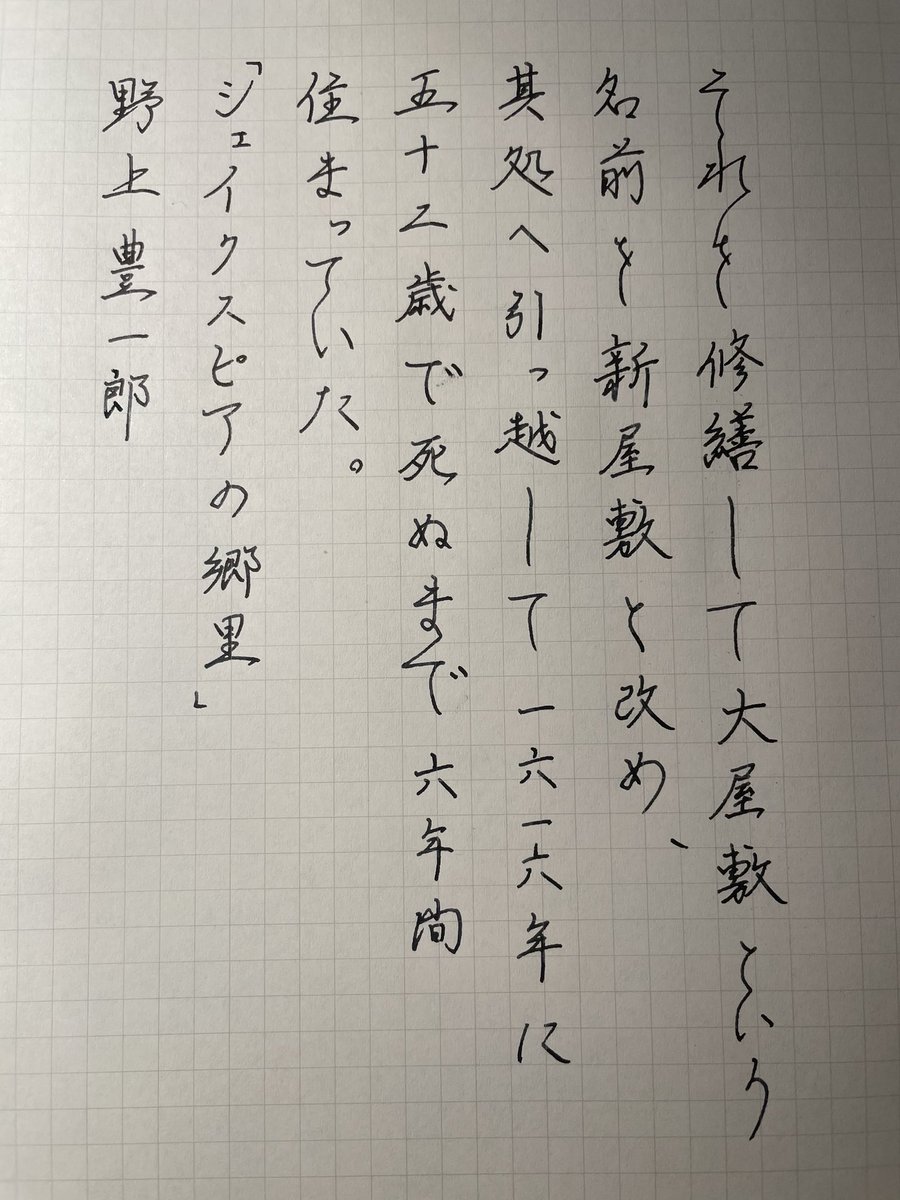 それを修繕して大屋敷という
名前を新屋敷と改め、
其処へ引っ越して一六一六年に
五十二歳で死ぬまで六年間
住まっていた。
「シェイクスピアの郷里」
野上豊一郎